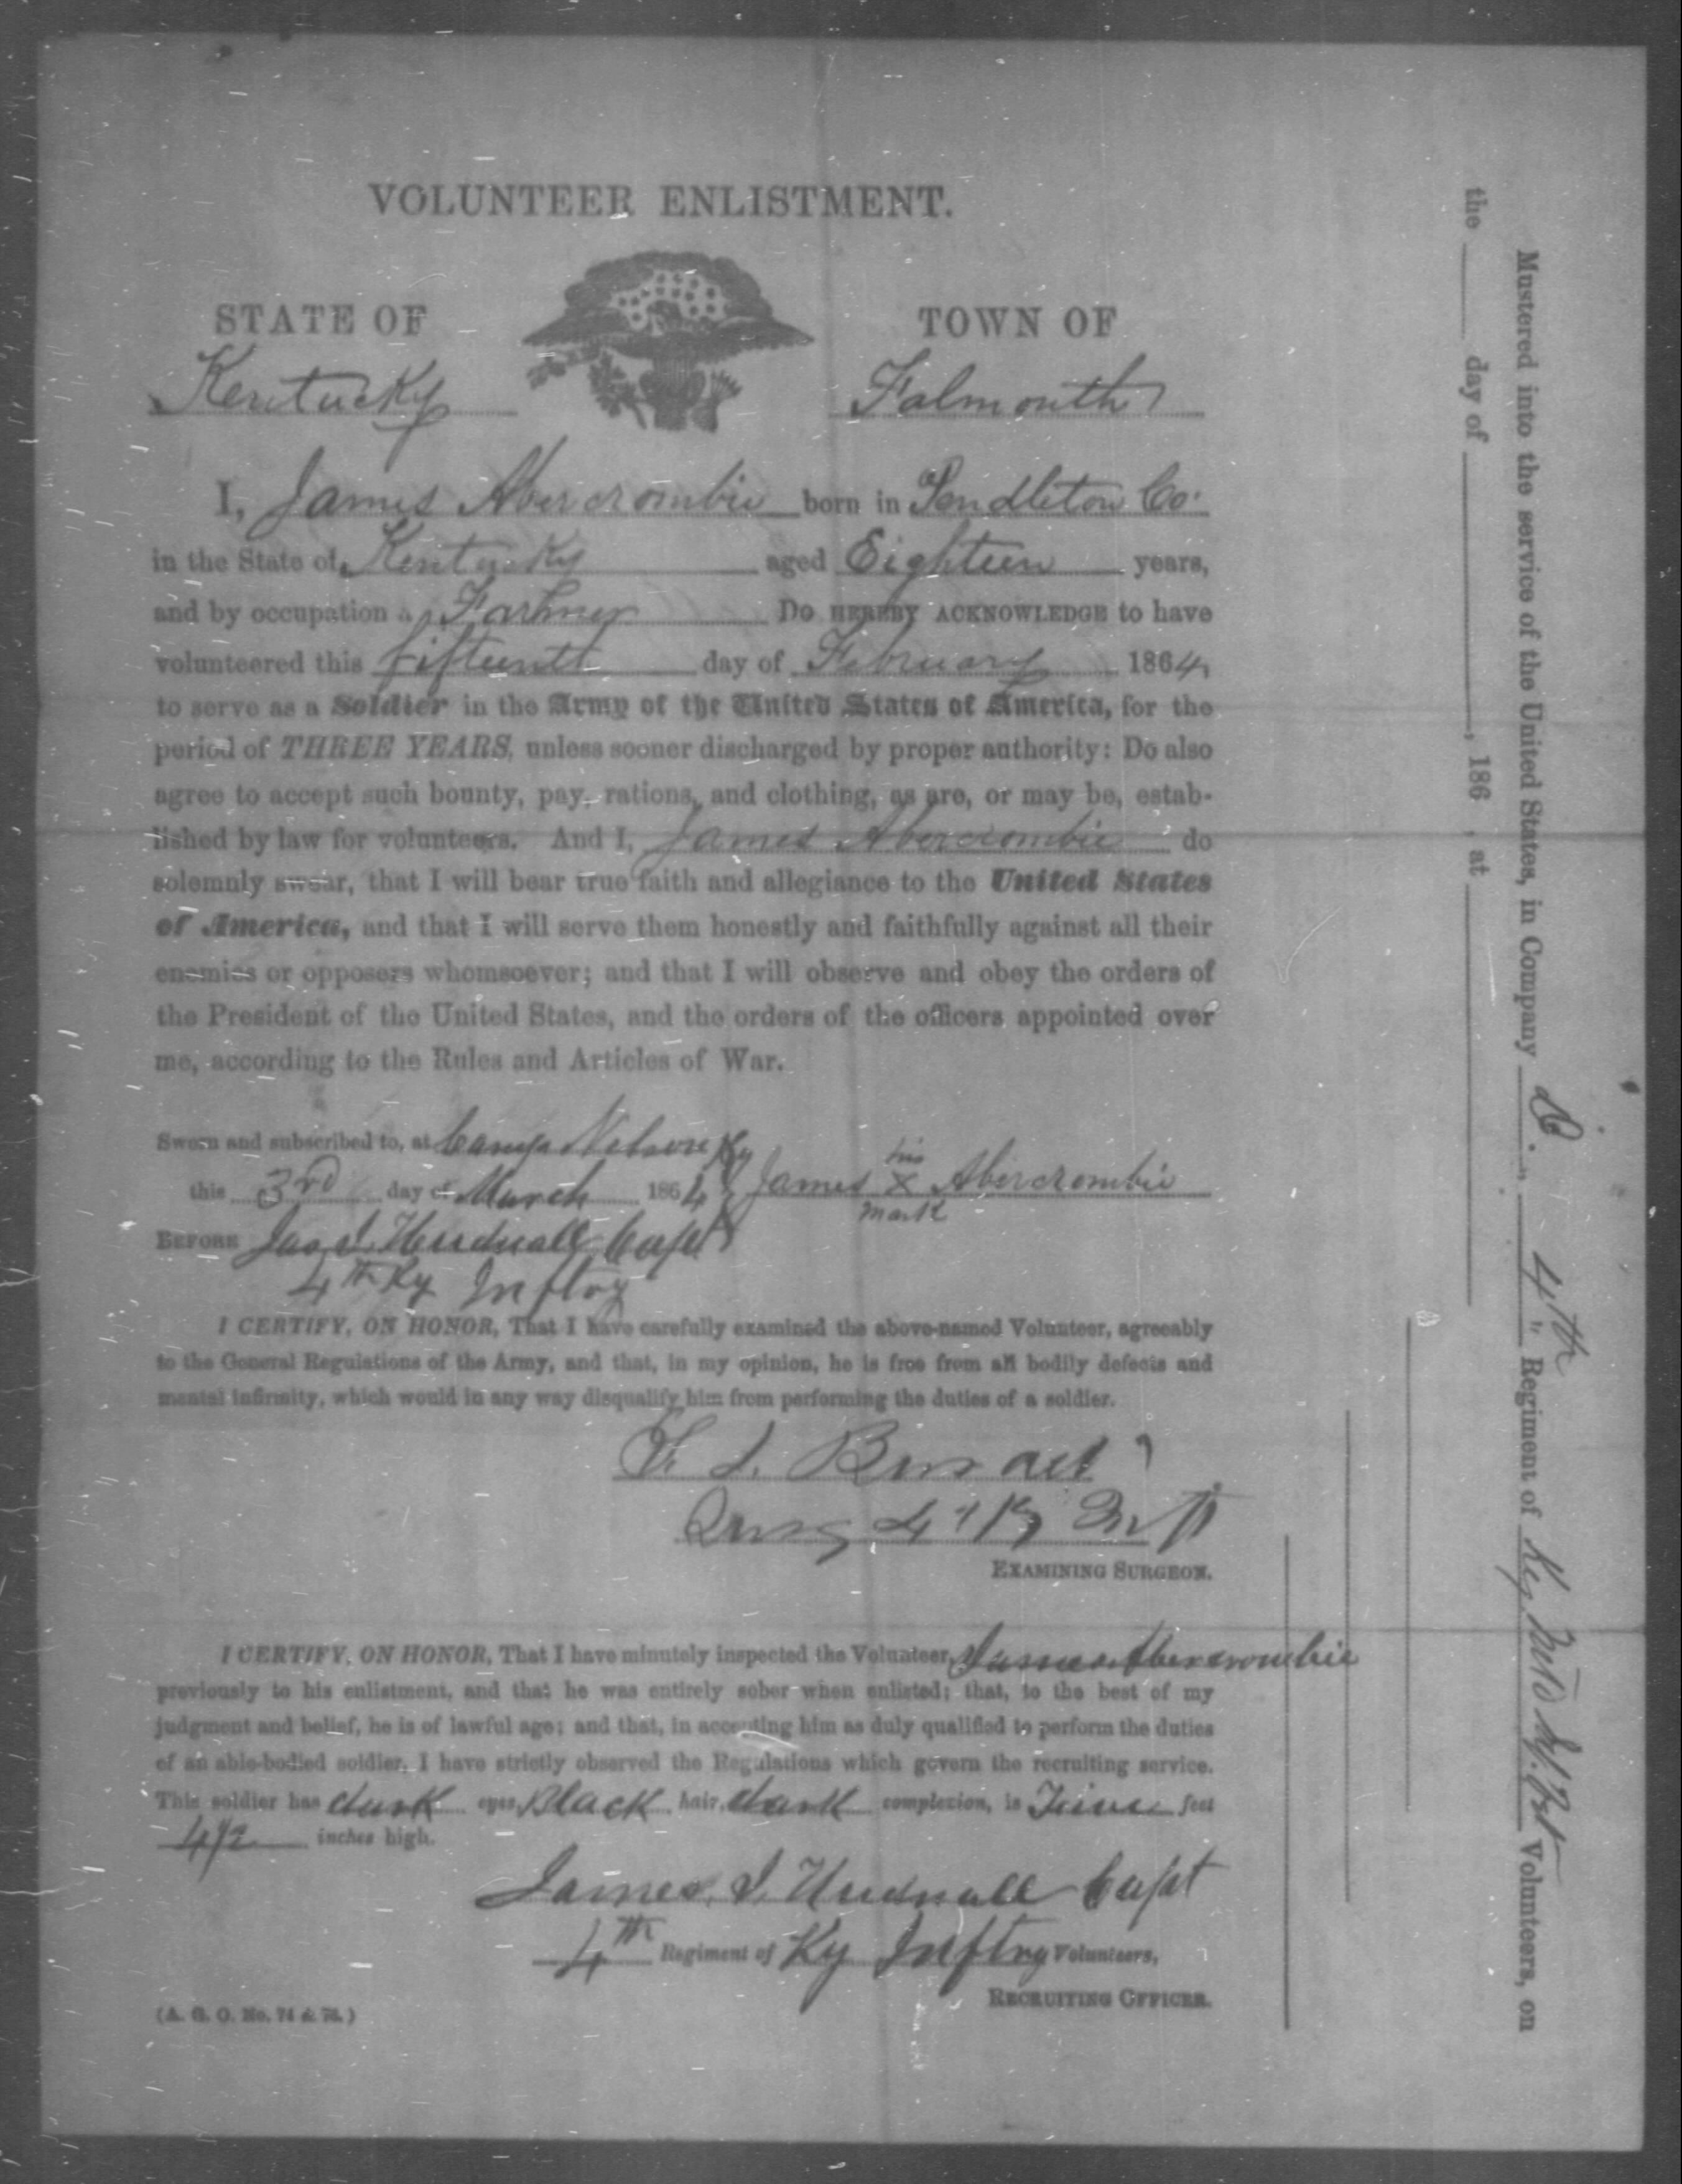 VOLUNTEER ENLISTMENT.
STATE OF
TOWN OF
Kentucky
Falmouth
I, James Abercrombie born in Pendleton Co.
in the State of Kentucky aged Eighteen years,
and by occupation a Farmer Do HEREBY ACKNOWLEDGE to have
volunteered this fifteenth day of February 1864,
to serve as a Soldier in the Army of the United States of America, for the
period of THREE YEARS, unless sooner discharged by proper authority: Do also
agree to accept such bounty, pay, rations, and clothing, as are, or may be, estab-
lished by law for volunteers. And I, James Abercrombie do
solemnly swear, that I will bear true faith and allegiance to the United States
of America, and that I will serve them honestly and faithfully against all their
enemies or opposers whomsoever; and that I will observe and obey the orders of
the President of the United States, and the orders of the officers appointed over
me, according to the Rules and Articles of War.
Sworn and subscribed to, at Camp Nelson Ky
this 3rd day of March 1864
James his X mark Abercrombie
BEFORE Jas. J. Hudnall Capt
4th Ky Inftry
I CERTIFY, ON HONOR, That I have carefully examined the above-named Volunteer, agreeably
to the General Regulations of the Army, and that, in my opinion, he is free from all bodily defects and
mental infirmity, which would in any way disqualify him from performing the duties of a soldier.
4th Ky Inft
EXAMINING SURGEON.
I CERTIFY, ON HONOR, That I have minutely inspected the Volunteer, James Abercrombie
previously to his enlistment, and that he was entirely sober when enlisted; that, to the best of my
judgment and belief, he is of lawful age; and that, in accepting him as duly qualified to perform the duties
of an able-bodied soldier, I have strictly observed the Regulations which govern the recruiting service.
This soldier has dark eyes, Black hair, dark complexion, is Five feet
4 1/2 inches high.
James. J. Hudnall Capt
4th Regiment of Ky Inftry Volunteers,
RECRUITING OFFICER.
(A. G. O. No. 74 & 76.)
Mustered into the service of the United States, in Company B. 4th Regiment of Ky. Mtd Inft Volunteers, on
the day of , 186 , at